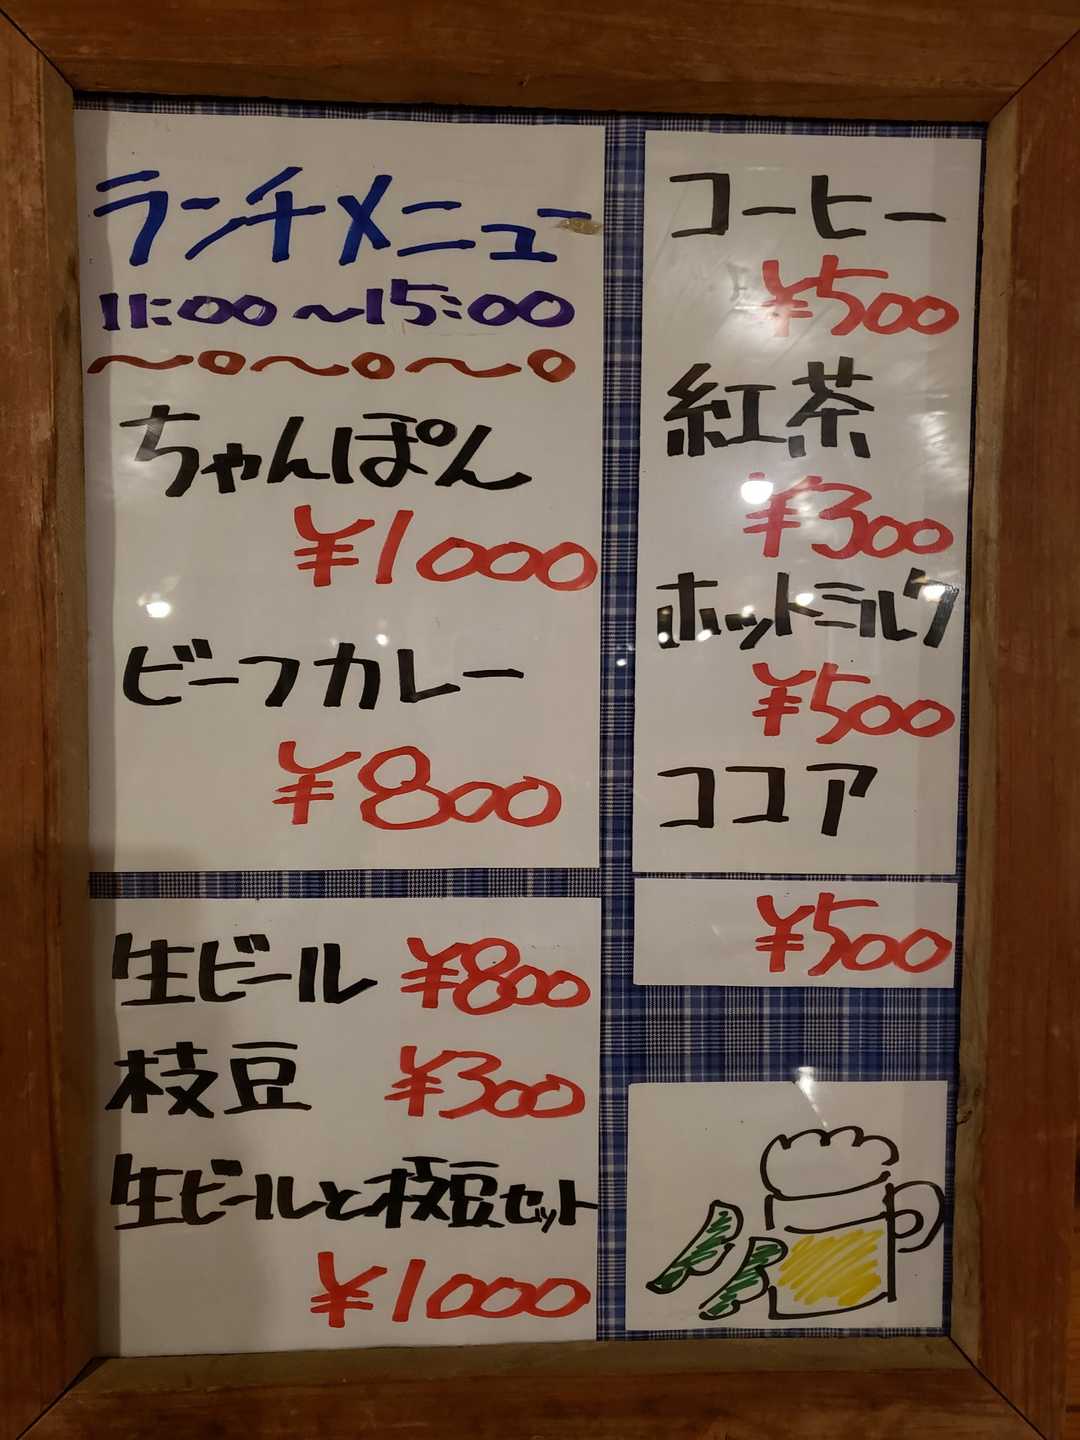 ランチメニュー
11:00〜15:00
ちゃんぽん
¥1000
ビーフカレー
¥800
生ビール ¥800
枝豆 ¥300
生ビールと枝豆セット
¥1000
コーヒー
¥500
紅茶
¥300
ホットミルク
¥500
ココア
¥500